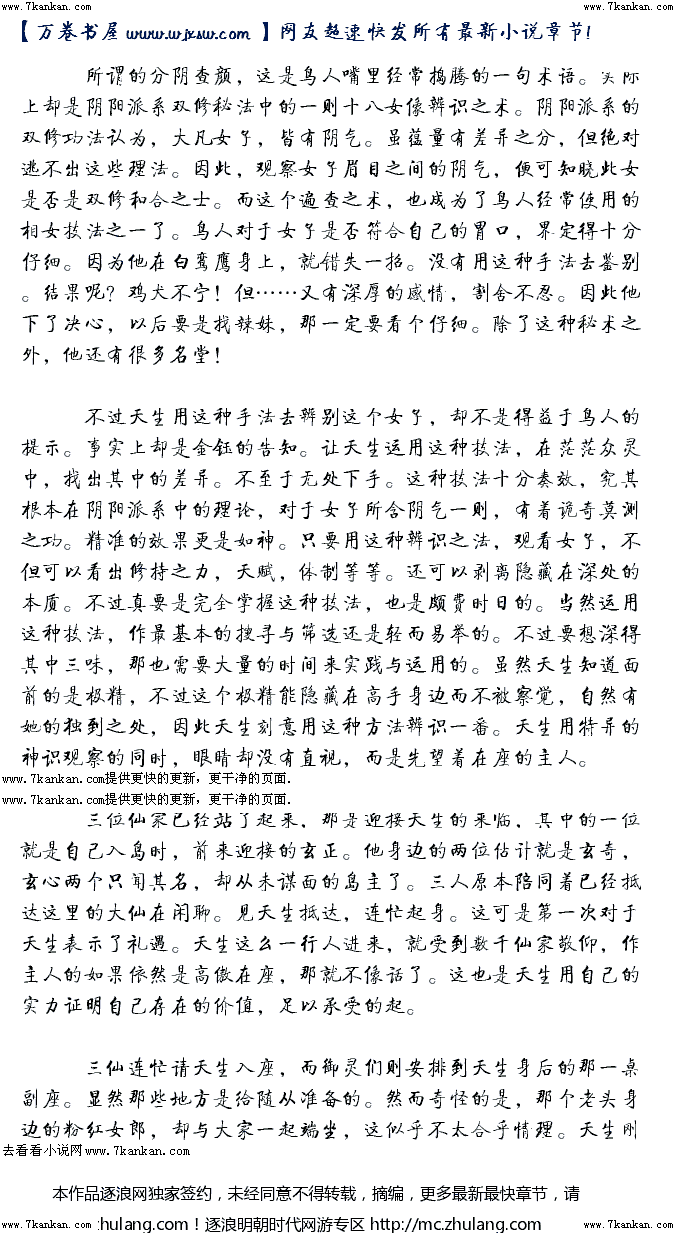 www.7kankan.com www.7kankan.com
【万卷书屋 www.wjxsw.com 】网友超速快发所有最新小说章节!
所谓的分阴查颜，这是鸟人嘴里经常捣腾的一句术语。实际
上却是阴阳派系双修秘法中的一则十八女像辨识之术。阴阳派系的
双修功法认为，大凡女子，皆有阴气。虽蕴量有差异之分，但绝对
逃不出这些理法。因此，观察女子眉目之间的阴气，便可知晓此女
是否是双修和合之士。而这个遍查之术，也成为了鸟人经常使用的
相女技法之一了。鸟人对于女子是否符合自己的胃口，界定得十分
仔细。因为他在白鸾鹰身上，就错失一招。没有用这种手法去鉴别
。结果呢？鸡犬不宁！但……又有深厚的感情，割舍不忍。因此他
下了决心，以后要是找辣妹，那一定要看个仔细。除了这种秘术之
外，他还有很多名堂！
不过天生用这种手法去辨别这个女子，却不是得益于鸟人的
提示。事实上却是金钰的告知。让天生运用这种技法，在茫茫众灵
中，找出其中的差异。不至于无处下手。这种技法十分奏效，究其
根本在阴阳派系中的理论，对于女子所含阴气一则，有着诡奇莫测
之功。精准的效果更是如神。只要用这种辨识之法，观看女子，不
但可以看出修持之力，天赋，体制等等。还可以剥离隐藏在深处的
本质。不过真要是完全掌握这种技法，也是颇费时日的。当然运用
这种技法，作最基本的搜寻与筛选还是轻而易举的。不过要想深得
其中三味，那也需要大量的时间来实践与运用的。虽然天生知道面
前的是极精，不过这个极精能隐藏在高手身边而不被察觉，自然有
她的独到之处，因此天生刻意用这种方法辨识一番。天生用特异的
神识观察的同时，眼睛却没有直视，而是先望着在座的主人。
www.7kankan.com提供更快的更新，更干净的页面.
www.7kankan.com提供更快的更新，更干净的页面.
三位仙家已经站了起来，那是迎接天生的来临，其中的一位
就是自己入岛时，前来迎接的玄正。他身边的两位估计就是玄奇，
玄心两个只闻其名，却从未谋面的岛主了。三人原本陪同着已经抵
达这里的大仙在闲聊。见天生抵达，连忙起身。这可是第一次对于
天生表示了礼遇。天生这么一行人进来，就受到数千仙家敬仰，作
主人的如果依然是高傲在座，那就不像话了。这也是天生用自己的
实力证明自己存在的价值，足以承受的起。
三仙连忙请天生入座，而御灵们则安排到天生身后的那一桌
副座。显然那些地方是给随从准备的。然而奇怪的是，那个老头身
边的粉红女郎，却与大家一起端坐，这似乎不太合乎情理。天生刚
去看看小说网www.7kankan.com
本作品逐浪网独家签约，未经同意不得转载，摘编，更多最新最快章节，请
www.7kankan.com zhulang.com！逐浪明朝时代网游专区 http://mc.zhulang.com www.7kankan.com